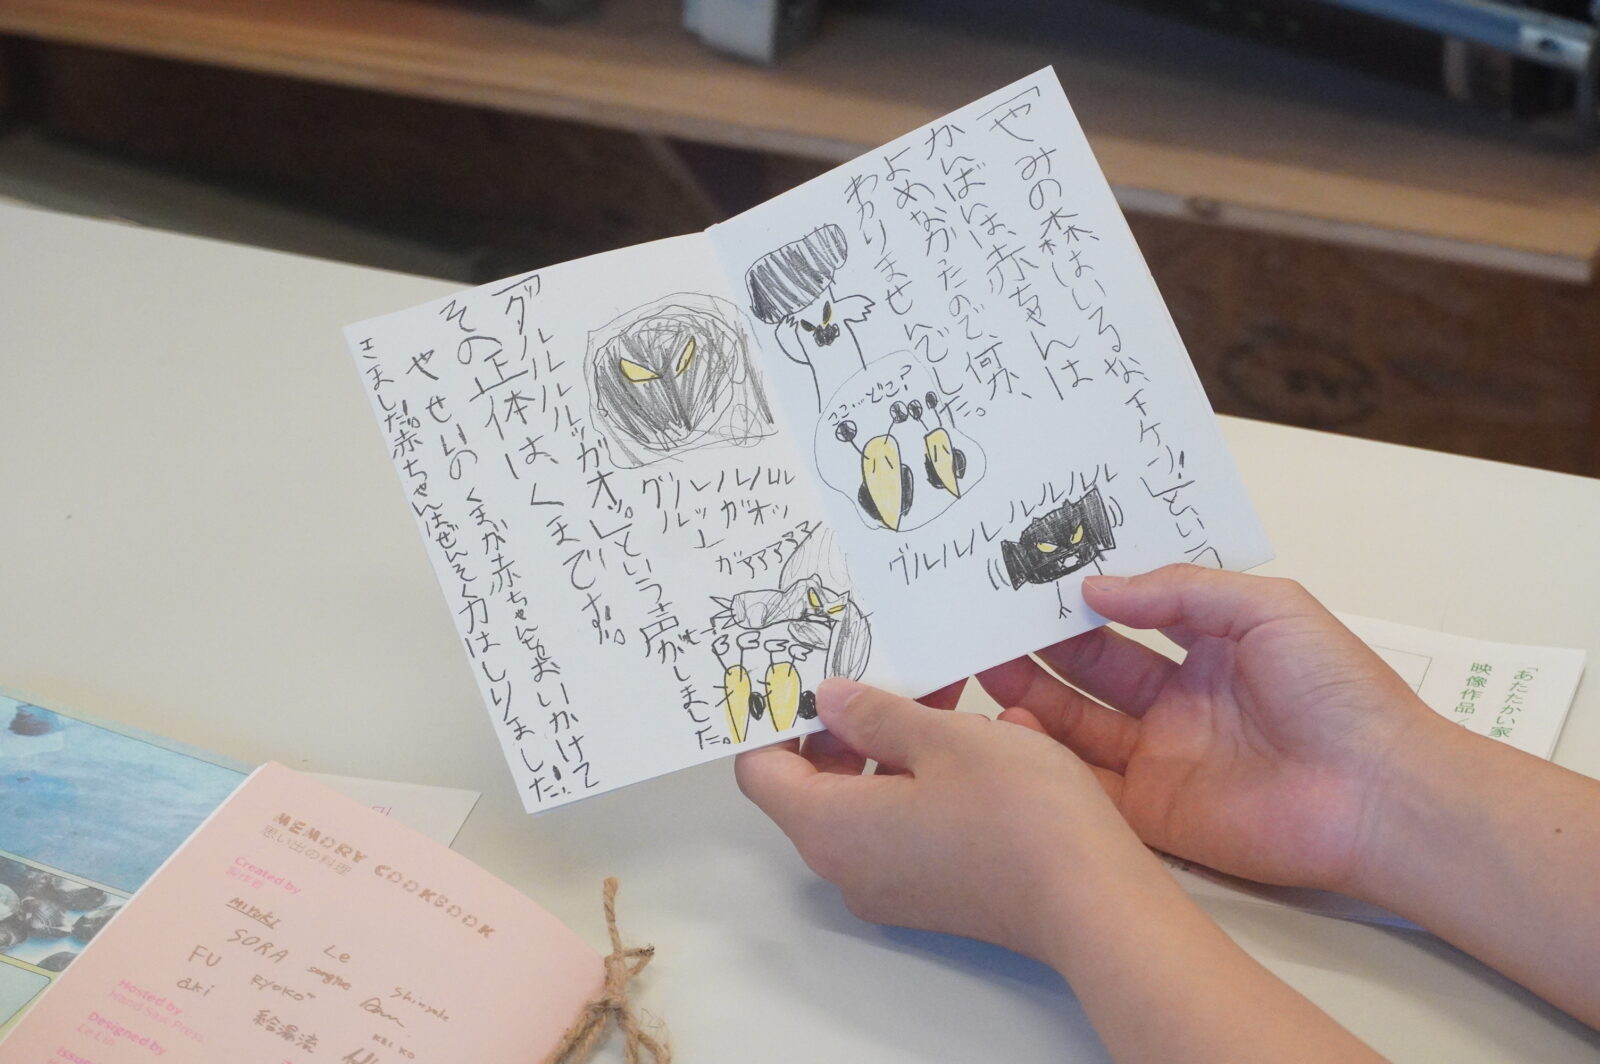 「やみの森はいるな、キケン!」という
かんばんは、赤ちゃんは
よめなかったので、何か、
わかりませんでした。
ここ…どこ?
グルルルルルルルル
「グルルルルルッガオッ。」という声がしました。
その正体は、くまです!!。
やせいのくまが赤ちゃんをおいかけて
きました!!。赤ちゃんはぜんそく力はしりました!!。
グルルルルル
ルッ ガオッ
ガアアアアア
MEMORY COOKBOOK
思い出の料理
Created by
製作者
MIYUKI
SORA
Le
FU
aki
RYOKO
Shinyuke
給湯流
KEIKO
Hosted by
Hand Saw Press
Designed by
Le Lin
Issue
「あたたかい家
映像作品